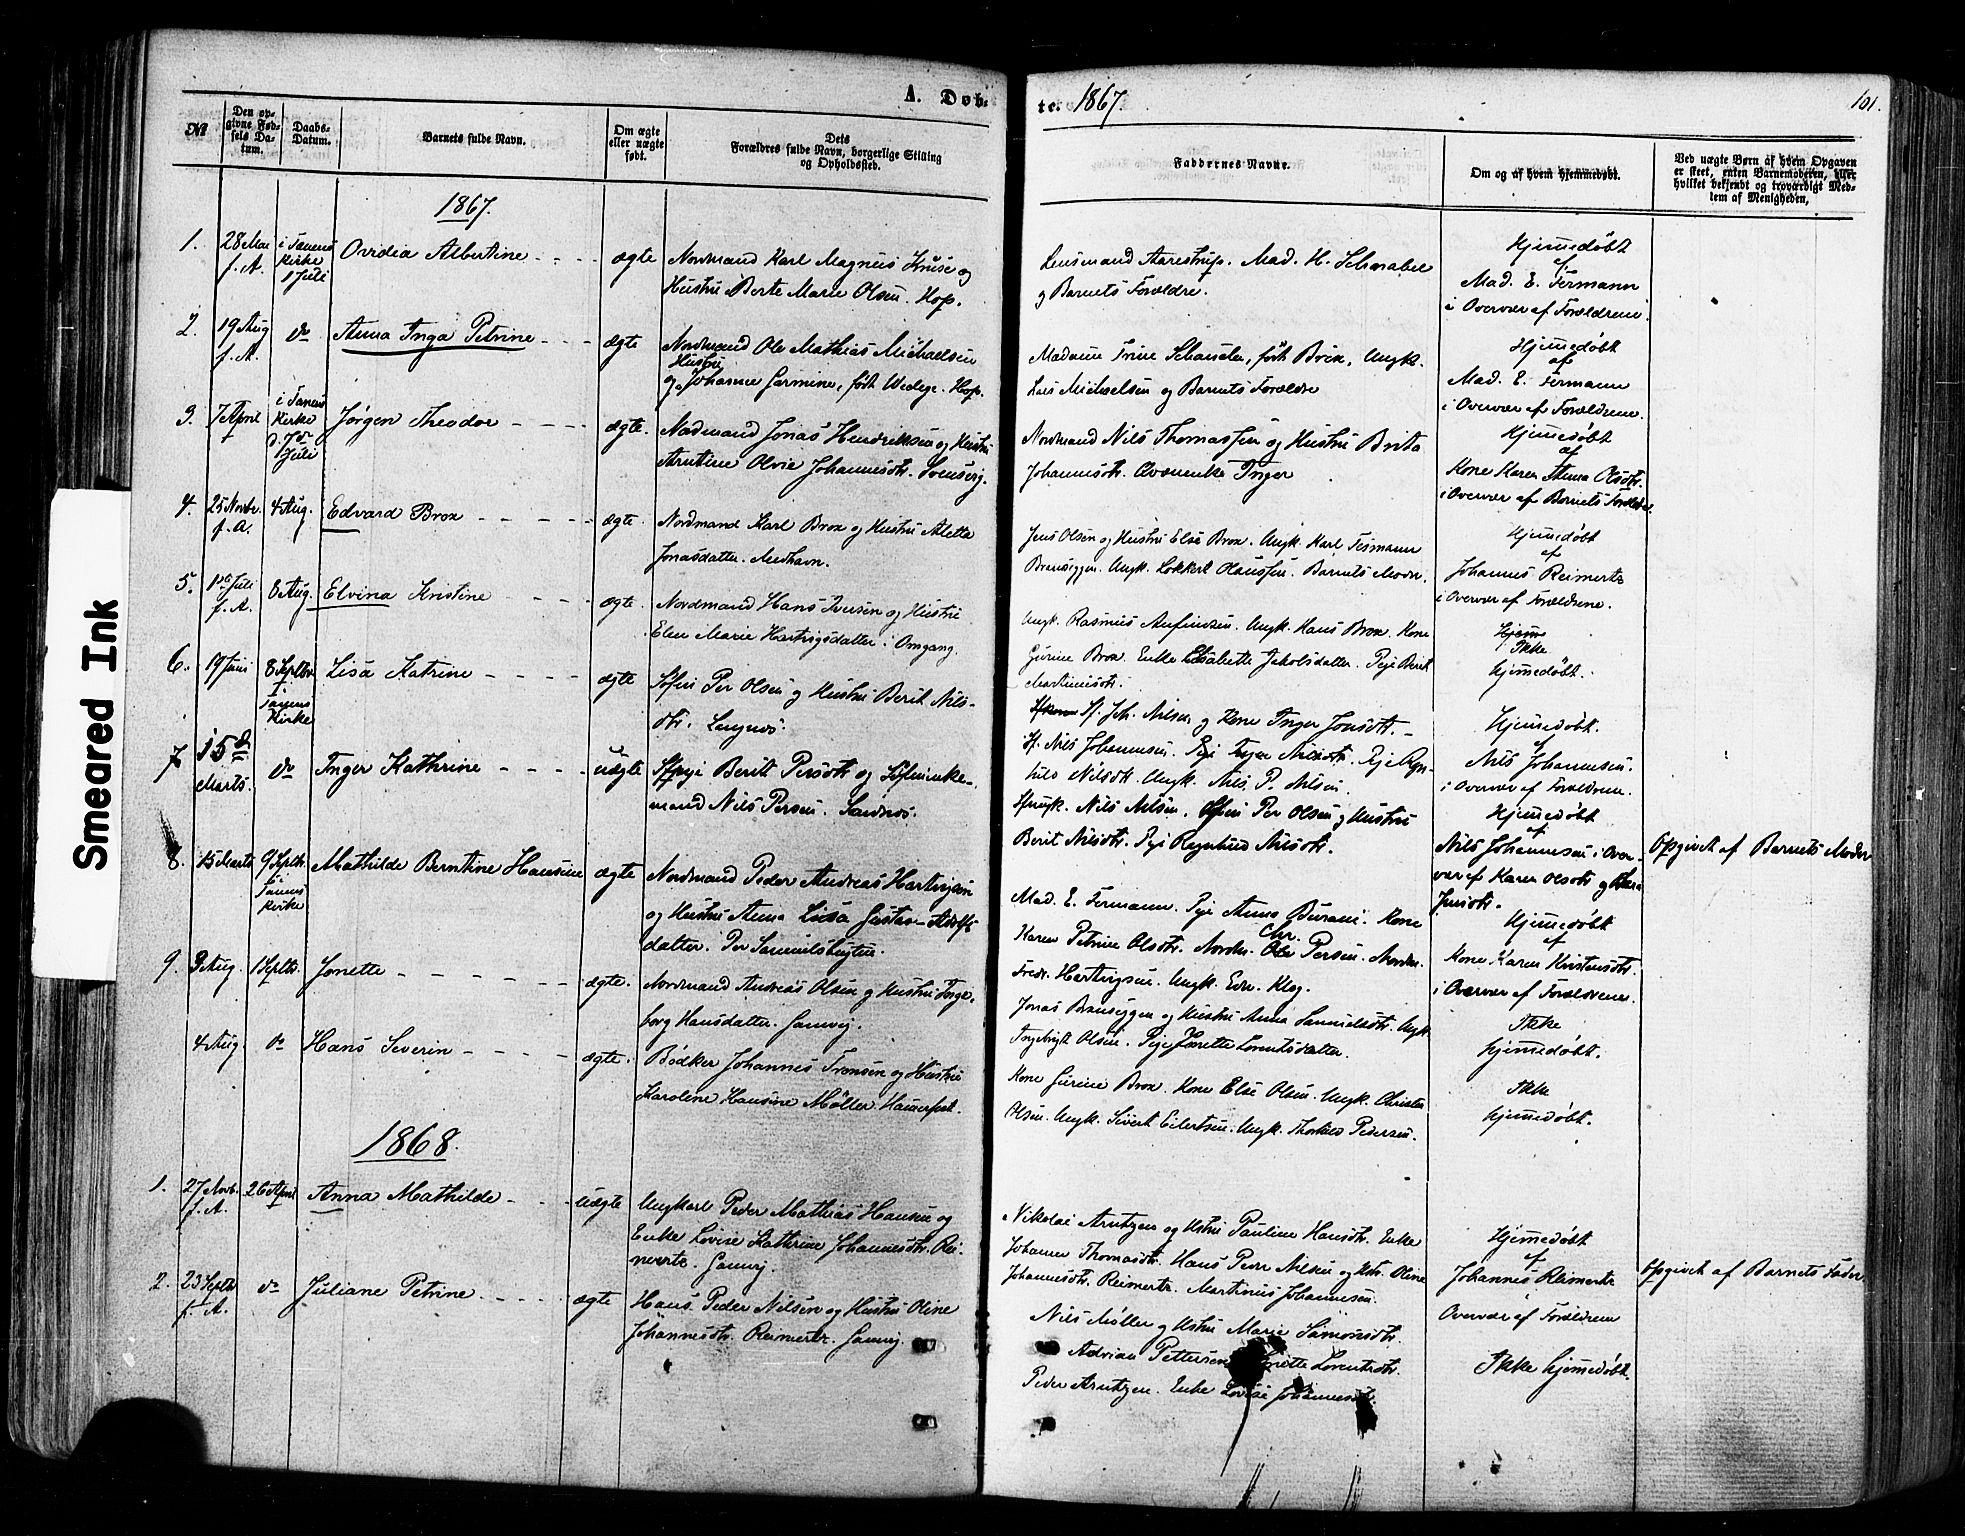 Smeared Ink
A. Døb-
te. 1867.
101.
№
Den op-
givne Fød-
sels Da-
tum.
Daabs-
Datum.
Barnets fulde Navn.
Om ægte
eller uægte
født.
Dets
Forældres fulde Navn, borgerlige Stilling
og Opholdssted.
Faddernes Navne.
Om og af hvem hjemmedøbt.
Ved uægte Børn af hvem Opgaven
er skeet, enten Barnemoderen, eller
hvilket bekjendt og troværdigt Med-
lem af Menigheden,
1867.
1.
28 Mai
f. A.
i Tanens
Kirke
7 Juli
Ovidia Albertine
ægte
Nordmand Karl Magnus Kruse og
Hustru Berte Marie Olsen. Hop.
Lensmand Aarestrup. Mad. H. Schnabel
og Barnets Forældre.
Hjemmedøbt
af
Mad. E. Fermann
i Overvær af Forældrene.
2.
19 Aug
f. A.
do
Anna Inga Petrine
ægte
Nordmand Ole Mathias Michaelsen
og Hustru Johanne Jarmine, født Wedege. Hop.
Madame Trine Schanche, født Brox, Ungk.
Lars Michaelsen og Barnets Forældre
Hjemmedøbt
af
Mad. E. Fermann
i Overvær af Forældrene.
3.
7 April
i Tanens
Kirke
d. 7de
Juli
Jørgen Theodor
ægte.
Nordmand Jonas Hendriksen og Hustru
Arntine Olvie Johannesdtr.
Nordmand Nils Thomassen og Hustru Brita
Johannesdtr. Inger
Hjemmedøbt
af
Kone Karen Anna Olsdtr.
i Overvær af Barnets Forældre
4.
25 Novbr.
f. A.
4 Aug.
Edvard Brox
ægte.
Nordmand Karl Brox og Hustru Aletta
Jonasdatter.
Jens Olsen og Hustru Else Brox. Ungk. Karl Fermann
Ungk. Lokkert Claussen. Barnets Moder.
Hjemmedøbt
af
Johannes Reimerts
i Overvær af Forældrene.
5.
Juli
f. A.
8 Aug.
Elvina Kristine
ægte
Nordmand Hans Iversen og Hustru
Elen Marie Hartvigsdatter i Omgang.
Ungk. Rasmus Anfindsen. Ungk. Hans Brox. Kone
Gurine Brox. Enke Elisabeth Jakobsdatter. Pige Berit
Martinusdtr.
Ikke
hjemmedøbt.
6.
19 Juni
8 Septbr
i
Tanens
Kirke
Lisa Katrine
ægte
Søfin Per Olsen og Hustru Berit Nils-
dtr. Langnes.
Sf. Joh. Nilsen og Kone Inger Jonsdtr.
Sf. Nils Johannesen. Pige Inger Nilsdtr. Pige Ragn-
hild Nilsdtr. Ungk. Nils P. Nilsen.
Hjemmedøbt.
af
Nils Johannesen.
i Overvær af Forældrene.
7
15de
Marts.
do
Inger Kathrine
uægte
Sfpige Berit Persdtr og Søfinenke-
mand Nils Persen. Sandnes.
Sfungk. Nils Nilsen. Søfin Per Olsen og Hustru
Berit Nilsdtr. Pige Ragnhild Nilsdtr.
Hjemmedøbt
af
Nils Johannesen i Over-
vær af Karen Olsdtr og
Jonsdtr.
Opgivet af Barnets Moder
8.
15 Marts
9 Septbr.
i
Tanens
Kirke
Mathilde Berntine Hansine
ægte
Nordmand Peder Andreas Hartvigsen
og Hustru Anna Lisa Gustav-Adolfs
datter.
Mad. E. Fermann. Pige Anne Kone
Karen Petrine Olsdtr. Nordm. Chr. Persen. Nordm.
Fredr. Hartvigsen. Ungk. Edv. Kleg.
Hjemmedøbt
af
Kone Karen Kristensdtr.
i Overvær af Forældrene.
9.
3 Aug.
1 Septbr.
Jonette
ægte.
Nordmand Andreas Olsen og Hustru Inge-
borg Hansdatter. Gamvig.
Jonas og Hustru Anna Samuelsdtr. Ungk.
Ingebrigt Olsen. Pige Jonette Lorentsdatter.
Ikke
hjemmedøbt.
4 Aug.
do
Hans Severin
ægte.
Bødker Johannes Tronsen og Hustru
Karoline Hansine Møller Hammerfest.
Kone Gurine Brox. Kone Else Olsen. Ungk. Christen
Olsen. Ungk. Sivert Eilertsen. Ungk. Thorkild Pedersen.
Ikke
hjemmedøbt.
1868.
1.
27 Novb.
f. A.
26 April
Anna Mathilde
uægte
Ungkarl Peder Mathias Hansen og
Enke Lovise Kathrine Johannesdtr. Rei-
merts. Gamvig.
Nikolai Arntzen og Hstru Pauline Hansdtr. Enke
Johanna Thomasdtr. Hans Peder Nilsen og Hstr. Oline
Johannesdtr. Reimerts. Martinus Johannesen.
Hjemmedøbt
af
Johannes Reimerts
Overvær af Forældrene
Opgivet af Barnets Fader
2.
23 Septbr
f. A.
do
Juliane Petrine
ægte
Hans Peder Nilsen og Hustru Oline
Johannesdtr. Reimerts. Gamvig.
Nils Møller og Hstru Marie Simonsdtr.
Adrian Pettersen Lorentsdtr.
Peder Arntzen. Enke Lovise Johannesdtr.
Ikke hjemmedøbt.